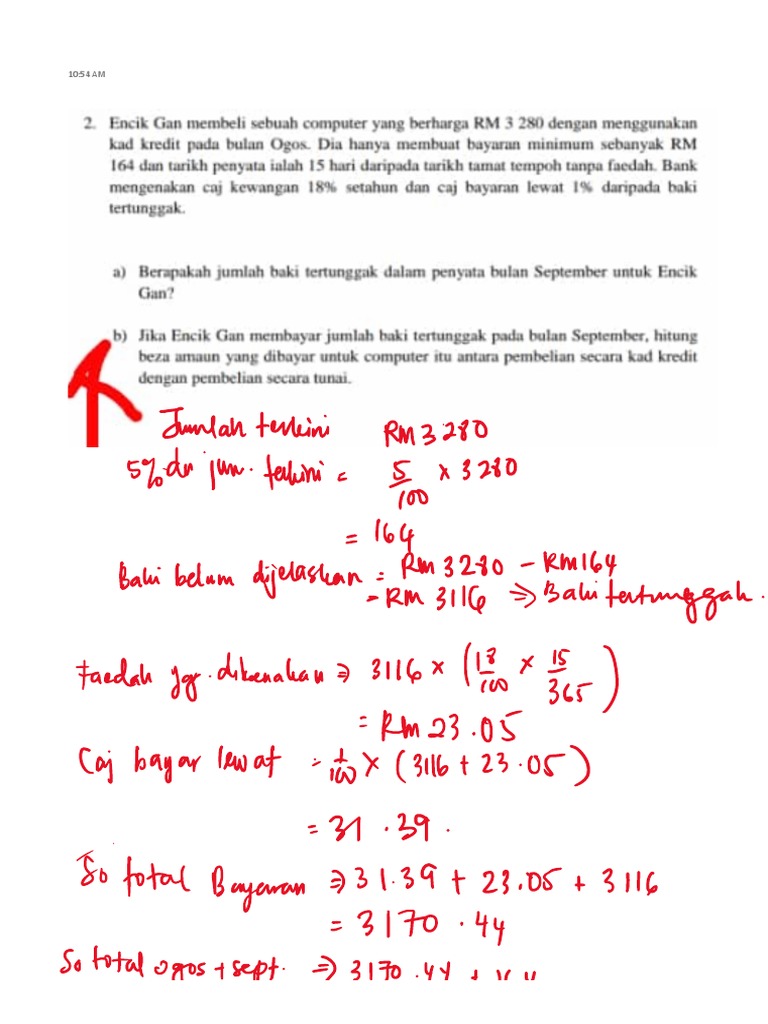 10:54 AM
2. Encik Gan membeli sebuah computer yang berharga RM 3 280 dengan menggunakan
kad kredit pada bulan Ogos. Dia hanya membuat bayaran minimum sebanyak RM
164 dan tarikh penyata ialah 15 hari daripada tarikh tamat tempoh tanpa faedah. Bank
mengenakan caj kewangan 18% setahun dan caj bayaran lewat 1% daripada baki
tertunggak.
a) Berapakah jumlah baki tertunggak dalam penyata bulan September untuk Encik
Gan?
b) Jika Encik Gan membayar jumlah baki tertunggak pada bulan September, hitung
beza amaun yang dibayar untuk computer itu antara pembelian secara kad kredit
dengan pembelian secara tunai.
Jumlah terkini RM 3 280
5% dr jum. terkini = 5/100 x 3280
= 164
Baki belum dijelaskan = RM 3280 - RM 164
= RM 3116 ⇒ Baki tertunggak.
Faedah yg. dikenakan ⇒ 3116 x (18/100 x 15/365)
= RM 23.05
Caj bayar lewat = 1/100 x (3116 + 23.05)
= 31.39.
So total Bayaran ⇒ 31.39 + 23.05 + 3116
= 3170.44
So total ogos + sept. ⇒ 3170.44 +